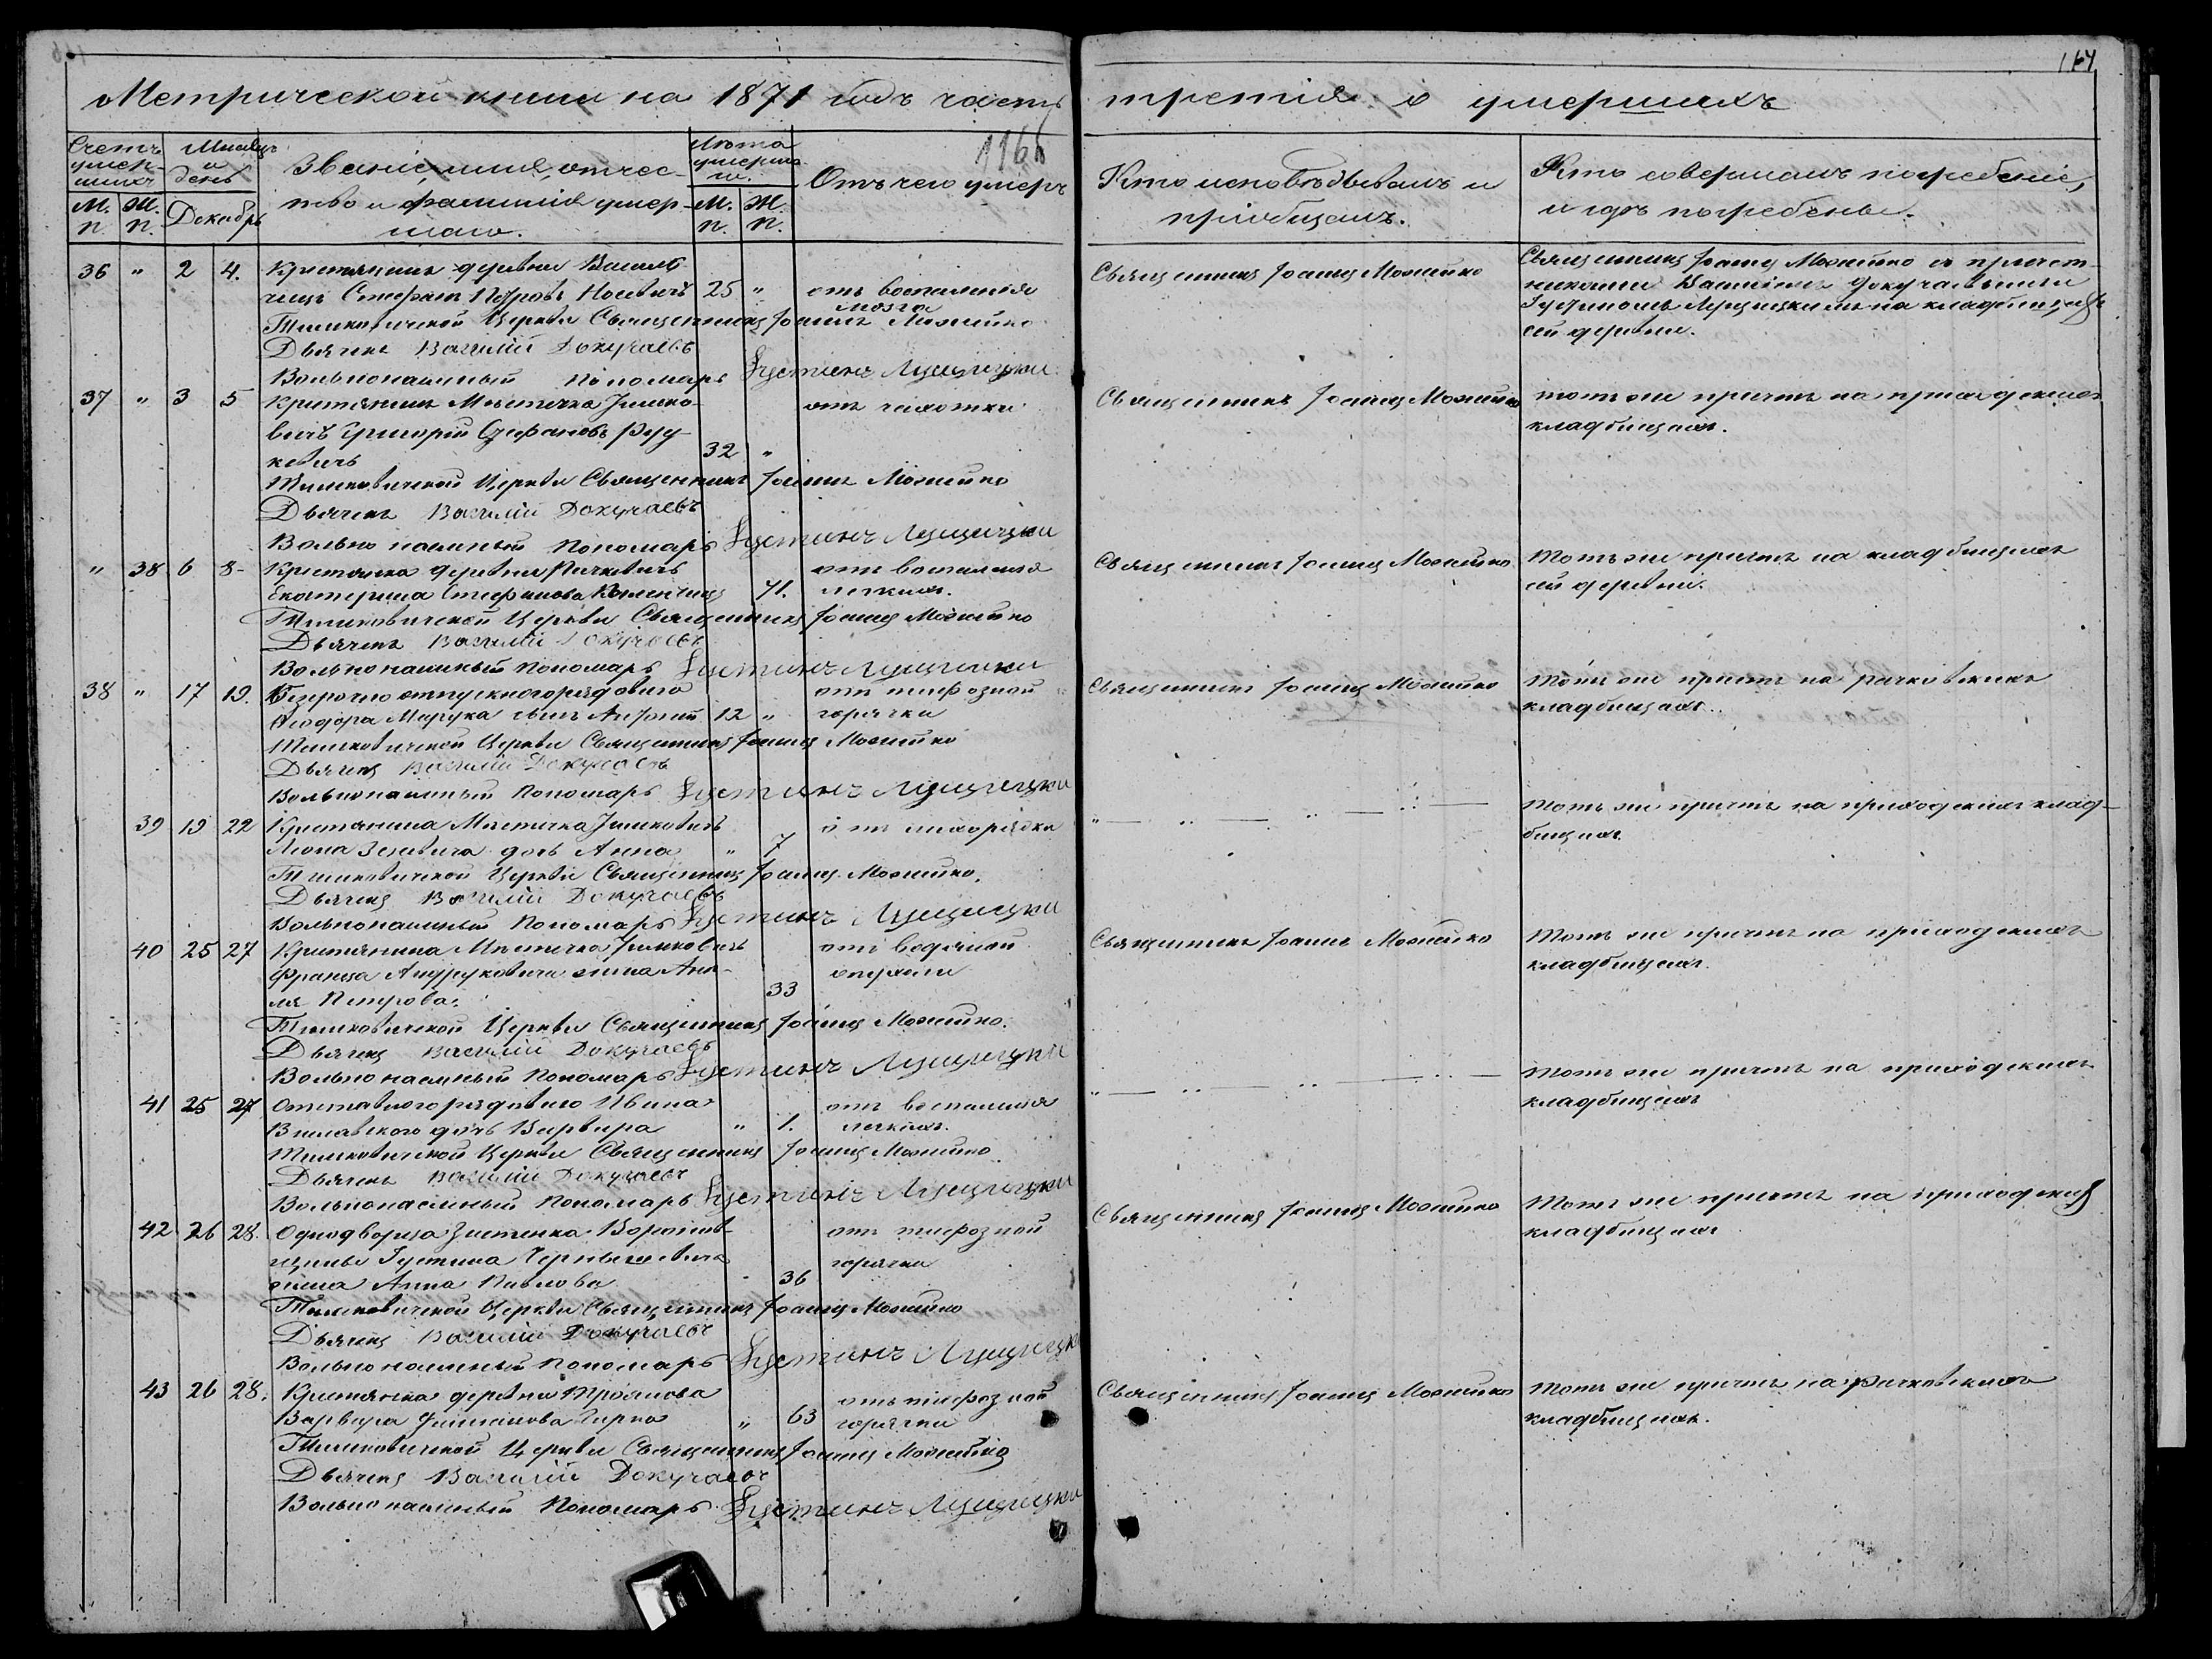 164
Метрической книги на 1871 годъ часть третія о умершихъ
1166
Счетъ умершихъ
Мѣсяцъ и день
Званіе, имя, отчество и фамилія умершаго.
Лѣта умершаго.
Отъ чего умеръ
Кто исповѣдывалъ и пріобщалъ.
Кто совершалъ погребеніе, и гдѣ погребены.
М. п. Ж. п. Декабрь М. п. Ж. п.
36 " 2 4. Крестьянинъ деревни
Стефанъ Петровъ 25 " отъ воспаленія
мозга
Священникъ Іоаннъ Можейко
Священникъ Іоаннъ Можейко съ причет-
никами Василіемъ Докучаевымъ и
Іустиномъ Лущицкимъ на кладбищѣ
сей деревни.
Тимковичской Церкви Священникъ Іоаннъ Можейко
Дьячекъ Василій Докучаевъ
Вольнонаемный Пономарь Іустинъ Лущицки
37 " 3 5 Крестьянинъ Мѣстечка Тимко-
вичъ Григорій Стефановъ Руд-
кевичъ 32 " отъ чахотки
Священникъ Іоаннъ Можейко
тотъ же причтъ на приходскихъ
кладбищахъ.
Тимковичской Церкви Священникъ Іоаннъ Можейко
Дьячекъ Василій Докучаевъ
Вольно наемный Пономарь Іустинъ Лущицки
" 38 6 8 Крестьянка деревни
Екатерина Стефанова 71. отъ воспаленія
легкихъ.
Священникъ Іоаннъ Можейко
Тотъ же причтъ на кладбищахъ
сей деревни.
Тимковичской Церкви Священникъ Іоаннъ Можейко
Дьячекъ Василій Докучаевъ
Вольнонаемный Пономарь Іустинъ Лущицки
38 " 17 19. Безсрочно отпускного рядового
Ѳеодора сынъ Антоній 12 " отъ тифозной
горячки
Священникъ Іоаннъ Можейко
Тотъ же причтъ на рачковскихъ
кладбищахъ.
Тимковичской Церкви Священникъ Іоаннъ Можейко
Дьячекъ Василій Докучаевъ
Вольнонаемный Пономарь Іустинъ Лущицки
39 19 22 Крестьянина Мѣстечка Тимковичъ
дочь Анна " 7 отъ лихорадки
Тотъ же причтъ на приходскихъ клад-
бищахъ.
Тимковичской Церкви Священникъ Іоаннъ Можейко.
Дьячекъ Василій Докучаевъ
Вольнонаемный Пономарь Іустинъ Лущицки
40 25 27 Крестьянина Мѣстечка Тимковичъ
Франца Андруковича жена
Петрова. 33 отъ водяной
опухоли
Священникъ Іоаннъ Можейко
Тотъ же причтъ на приходскихъ
кладбищахъ.
Тимковичской Церкви Священникъ Іоаннъ Можейко.
Дьячекъ Василій Докучаевъ
Вольнонаемный Пономарь Іустинъ Лущицки
41 25 27 Отставного рядового Ивана
дочь Варвара " 1. отъ воспаленія
легкихъ.
Тотъ же причтъ на приходскихъ
кладбищахъ
Тимковичской Церкви Священникъ Іоаннъ Можейко
Дьячекъ Василій Докучаевъ
Вольнонаемный Пономарь Іустинъ Лущицки
42 26 28. Однодворца Застѣнка
Іустина Чернышевича
жена Анна Павлова 36 отъ тифозной
горячки
Священникъ Іоаннъ Можейко
Тотъ же причтъ на приходскихъ
кладбищахъ
Тимковичской Церкви Священникъ Іоаннъ Можейко
Дьячекъ Василій Докучаевъ
Вольнонаемный Пономарь Іустинъ Лущицки
43 26 28. Крестьянка деревни
Варвара " 63 отъ тифозной
горячки
Священникъ Іоаннъ Можейко
Тотъ же причтъ на рачковскихъ
кладбищахъ.
Тимковичской Церкви Священникъ Іоаннъ Можейко
Дьячекъ Василій Докучаевъ
Вольнонаемный Пономарь Іустинъ Лущицки